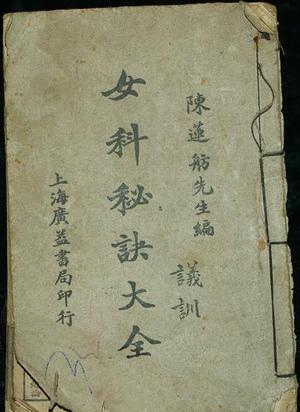 陳蓮舫先生編
議訓
女科秘訣大全
上海廣益書局印行